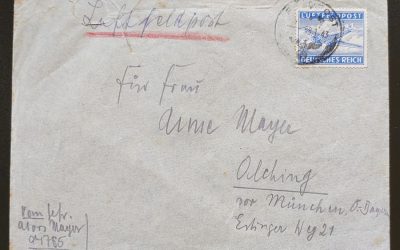 Luftfeldpost
LUFTFELDPOST
DEUTSCHES REICH
Für Frau
Anne Mayer
Olching
vor München, O-Bayern
Estinger Weg 21
vom Gefr.
Alois Mayer